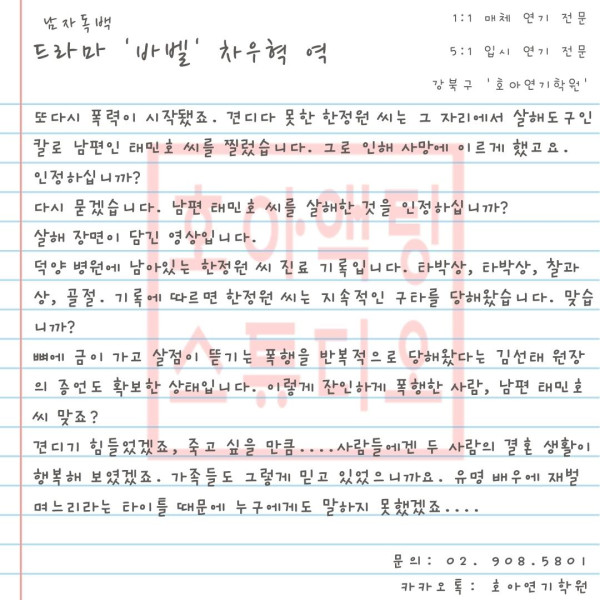 남자독백
1:1 매체 연기 전문
드라마 '바벨' 차우혁 역
5:1 입시 연기 전문
강북구 '호아연기학원'
또다시 폭력이 시작됐죠. 견디다 못한 한정원 씨는 그 자리에서 살해도구인
칼로 남편인 태민호 씨를 찔렀습니다. 그로 인해 사망에 이르게 했고요.
인정하십니까?
다시 묻겠습니다. 남편 태민호 씨를 살해한 것을 인정하십니까?
살해 장면이 담긴 영상입니다.
덕양 병원에 남아있는 한정원 씨 진료 기록입니다. 타박상, 타박상, 찰과
상, 골절. 기록에 따르면 한정원 씨는 지속적인 구타를 당해왔습니다. 맞습
니까?
뼈에 금이 가고 살점이 뜯기는 폭행을 반복적으로 당해왔다는 김선태 원장
의 증언도 확보한 상태입니다. 이렇게 잔인하게 폭행한 사람, 남편 태민호
씨 맞죠?
견디기 힘들었겠죠, 죽고 싶을 만큼....사람들에겐 두 사람의 결혼 생활이
행복해 보였겠죠. 가족들도 그렇게 믿고 있었으니까요. 유명 배우에 재벌
며느리라는 타이틀 때문에 누구에게도 말하지 못했겠죠....
호아액팅
스튜디오
문의: 02. 908.5801
카카오톡: 호아연기학원